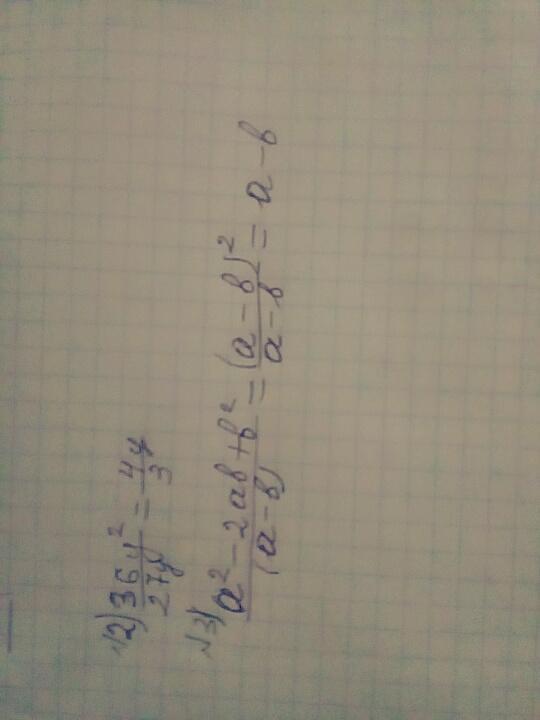 √2) 36y²/27y = 4y/3
√3) a² - 2ab + b²/(a - b) = (a - b)²/a - b = a - b